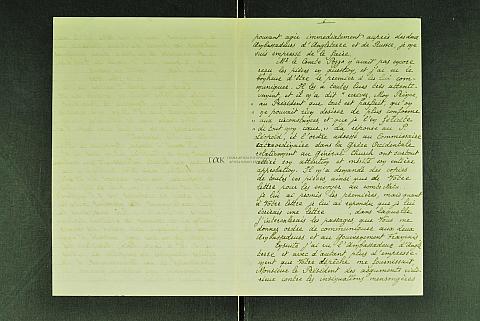 pouvant agir immédiatement auprès des deux
Ambassadeurs d'Angleterre et de Russie, je me
suis empressé de le faire.
Mr. le Comte Pozzo n'avait pas encore
reçu les pièces en question, et j'ai eu le
bonheur d'être le premier à les lui com-
muniquer. Il les a toutes lues attenti-
vement, et il m'a dit "écrivez, Mon Prince,
" au Président que tout est parfait, qu'on
" ne pouvait rien désirer de plus conforme
" aux circonstances, et que je l'en félicite
" de tout mon cœur." La réponse au P.
Léopold, et l'ordre adressé au Commissaire
extraordinaire dans la Grèce Occidentale
relativement au Général Church ont surtout
attiré son attention et mérité son entière
approbation. Il m'a demandé des copies
de toutes ces pièces ainsi que de Votre
lettre pour les envoyer au
je lui ai promis les premières, mais quant
à Votre lettre je lui ai répondu que je lui
écrirais une lettre, dans laquelle
j'intercalerais les passages que Vous me
donnez ordre de communiquer aux deux
Ambassadeurs et au Gouvernement Français
Ensuite j'ai vu l'Ambassadeur d'Angle-
terre et avec d'autant plus d'empresse-
ment que Votre dépêche me fournissait
Monsieur le Président des arguments victo-
rieux contre les insinuations mensongères